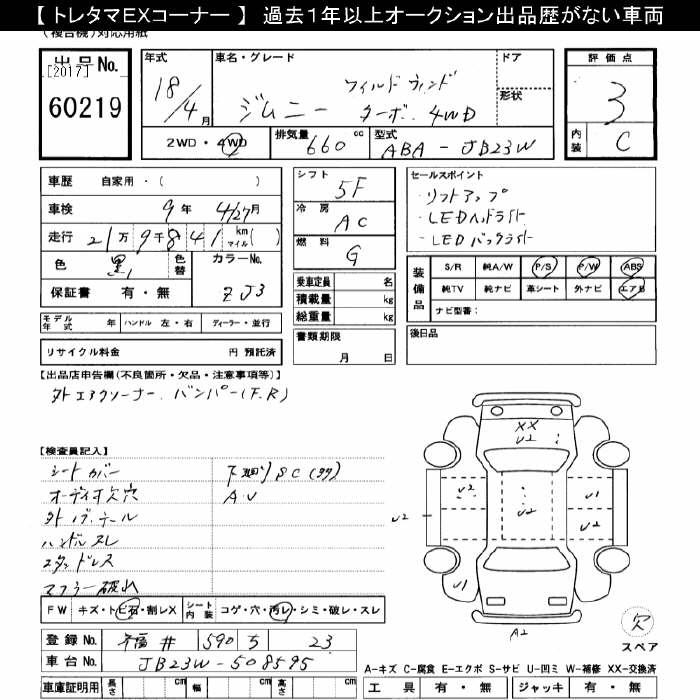 【 トレタマEXコーナー 】 過去１年以上オークション出品歴がない車両
(複合機)対応用紙
出品No.
[2017]
60219
年式
18/4 月
車名・グレード
ワイルドウィンド
ジムニー ターボ. 4WD
ドア
形状
評価点
3
内装 C
2WD・4WD
排気量 660 cc
型式 ABA - JB23W
車歴 自家用・( )
車検 9年 4/27月
走行 21万 9千 8 4 1 km マイル( )
色 黒
色替
カラーNo. ZJ3
保証書 有・無
シフト 5F
冷房 AC
燃料 G
乗車定員 名
積載量 kg
総重量 kg
書類期限
月 日
セールスポイント
・リフトアップ
・LEDヘッドライト
・LEDバックライト
装備品
S/R 純A/W P/S P/W ABS
純TV 純ナビ 革シート 外ナビ エアB
ナビ型番：
後日品
モデル年式 年 ハンドル 左・右 ディーラー・並行
リサイクル料金 円 預託済
【出品店申告欄(不良箇所・欠品・注意事項等)】
外エアクリーナー. バンパー(F.R)
【検査員記入】
シートカバー
オーディオ欠穴
ハンドルスレ
スタッドレス
マフラー破れ
下廻りSC(タタ)
A.U
XX
U2
U2
U2
U2
U1
U2
U1
A2
欠
スペア
FW キズ・トビ石・割レX
シート内装 コゲ・穴・汚レ・シミ・破レ・スレ
登録No. 福井 590 5 23
車台No. JB23W-508595
車庫証明用 長さ cm 幅 cm 高さ cm
A-キズ C-腐食 E-エクボ S-サビ U-凹ミ W-補修 XX-交換済
工具 有・無 ジャッキ 有・無